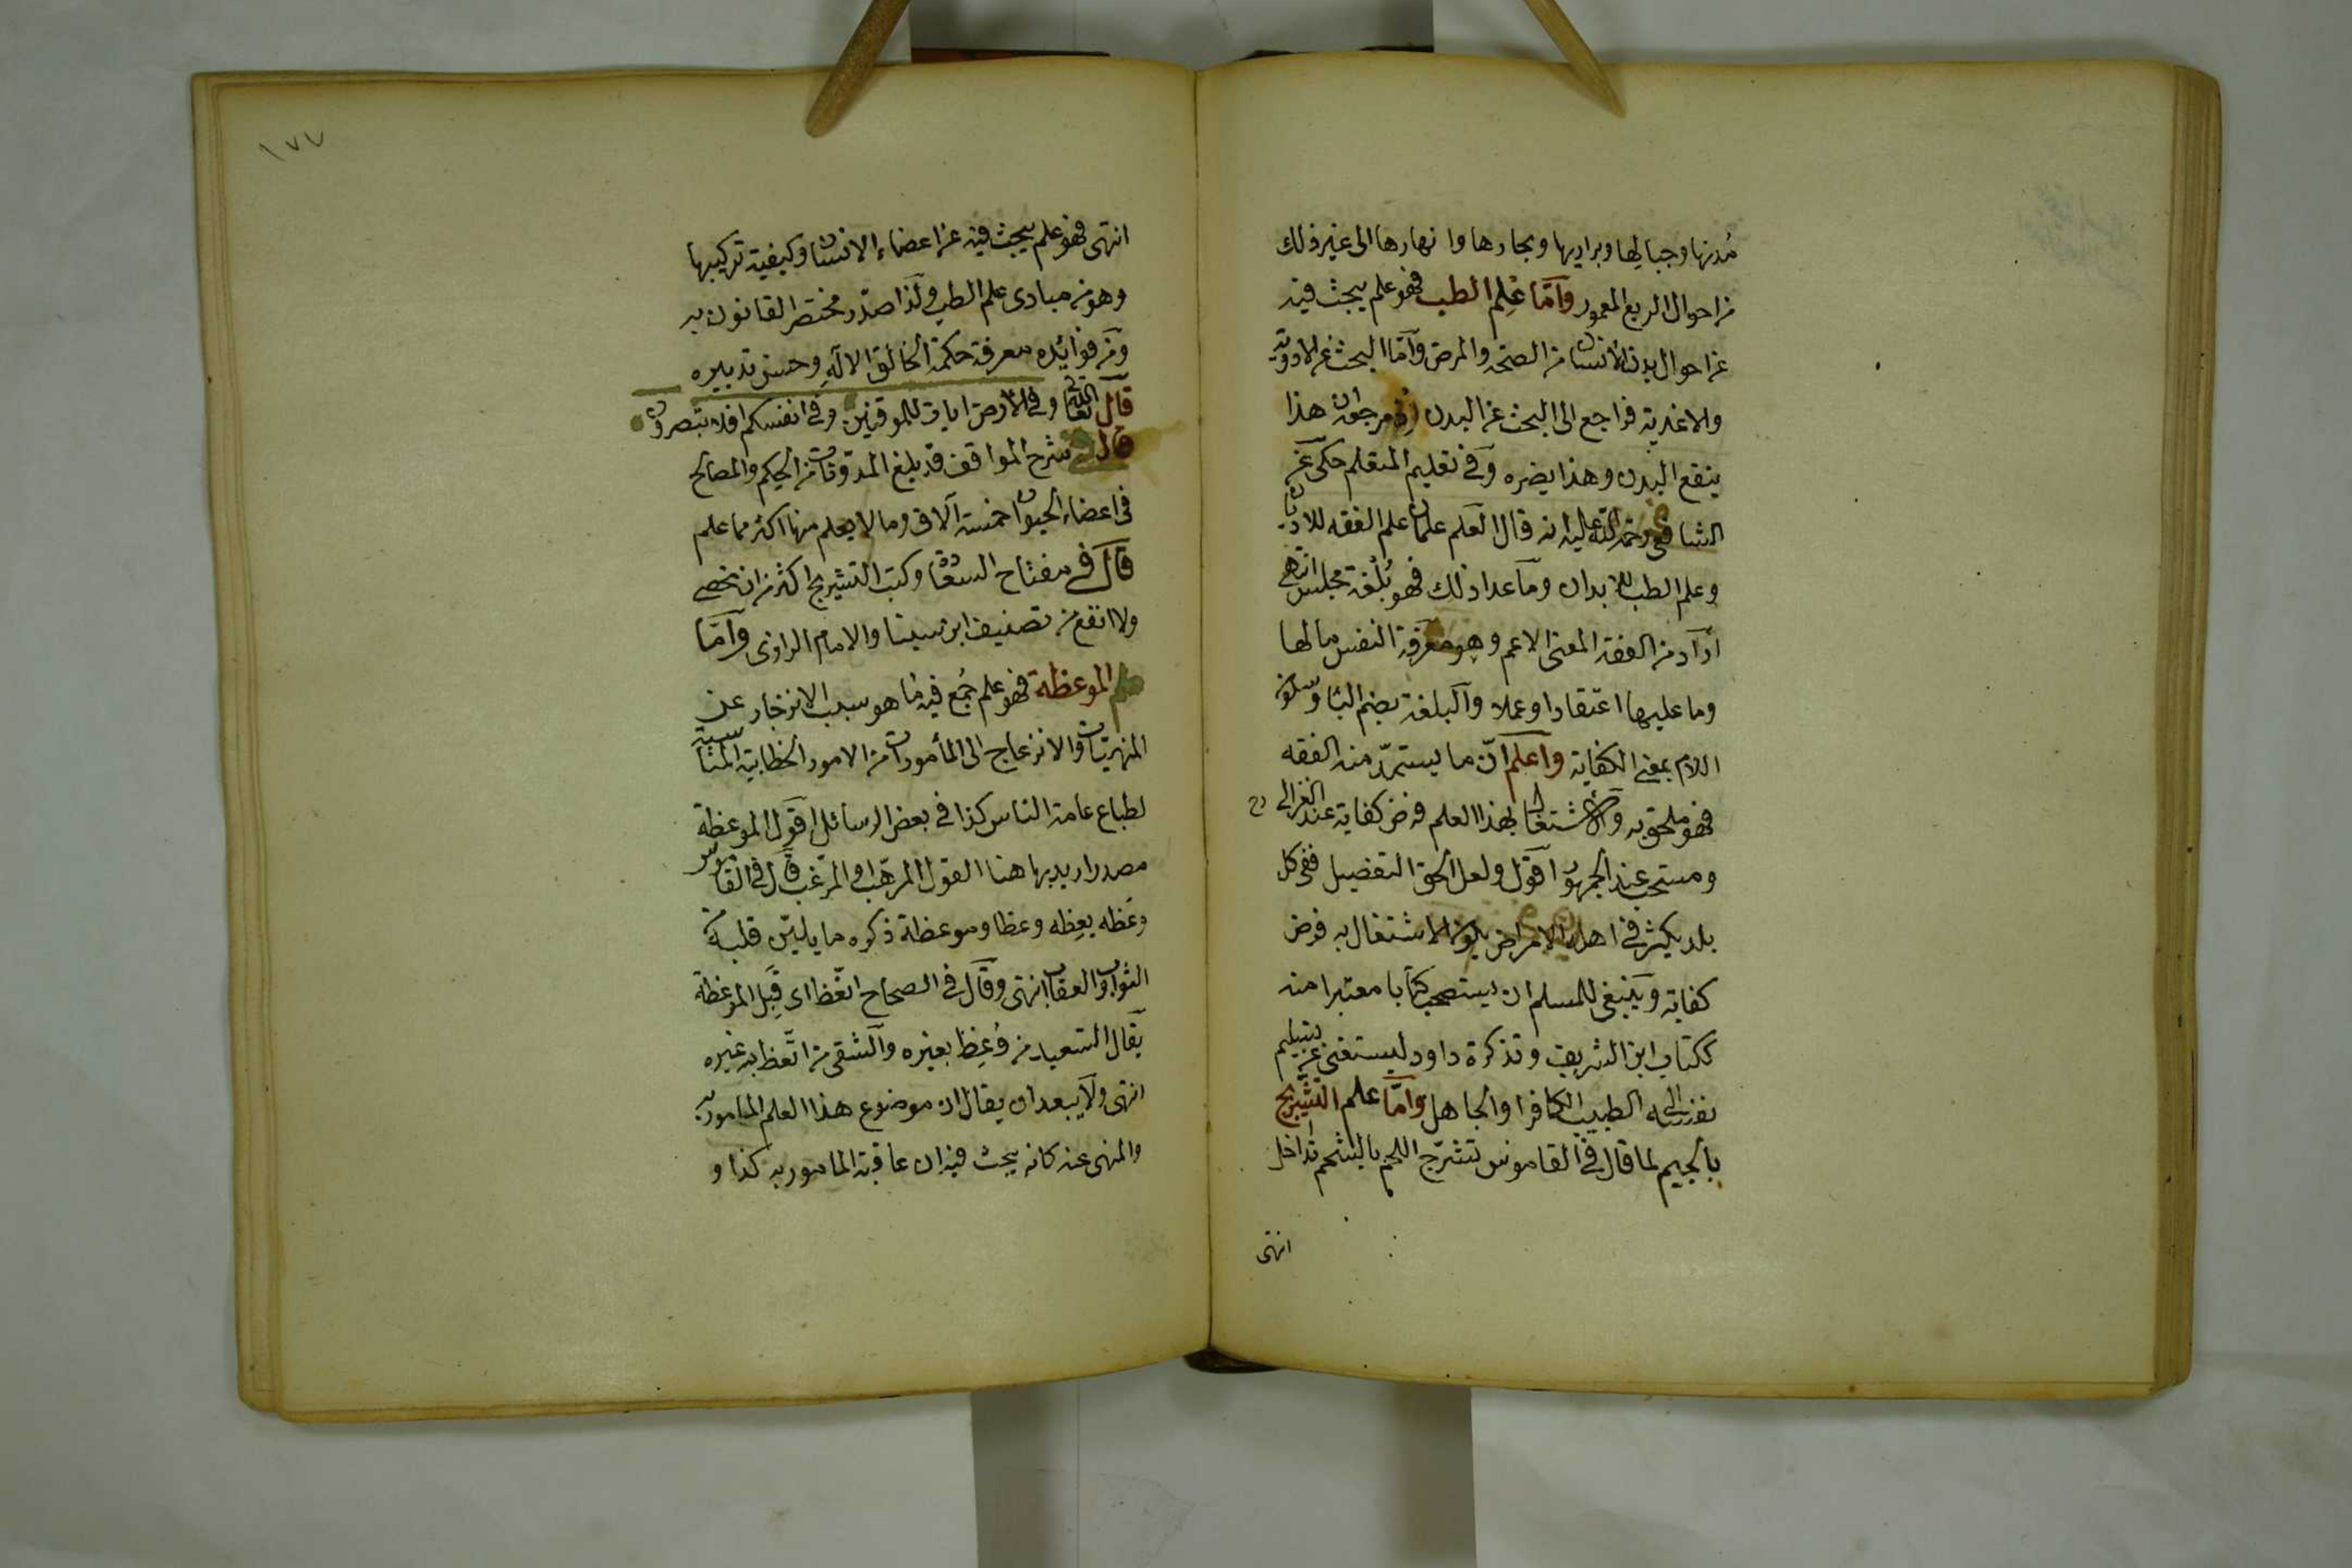 مُدنها وجبالها وبراريها وبحارها وانهارها الى غير ذلك
من احوال الربع المعمور وامّا عِلم الطب فهو علم يبحث فيه
عن احوال بدن الانسان من الصحة والمرض وامّا البحث عن الادوية
والاغذية فراجع الى البحث عن البدن اذ مرجعه ان هذا
ينفع البدن وهذا يضره وفى تعليم المتعلم حكى عن
الشافعى رحمة الله عليه انه قال العلم علمان علم الفقه للاديان
وعلم الطب للابدان وما عدا ذلك فهو بُلْغة مجلس انتهى
اراد من الفقه المعنى الاعم وهو معرفة النفس ما لها
وما عليها اعتقادا وعملا والبلغة بضم الباء وسكون
اللام بمعنى الكفاية واعلم انّ ما يستمدّ منه الفقه
فهو ملحق به والاشتغال بهذا العلم فرض كفاية عند الغزالى رح
ومستحب عند الجمهور اقول ولعل الحق التفصيل ففى كل
بلد يكثر فى اهله الامراض يكون الاشتغال به فرض
كفاية وينبغى للمسلم ان يستصحب كتابا معتبرا منه
ككتاب ابن الشريف وتذكرة داود ليستغنى عن تسليم
نفسه الى الطبيب الكافر او الجاهل وامّا علم التشريج
بالجيم لما قال فى القاموس تشرّج اللحم بالشحم تداخل
انتهى
١٧٧
انتهى فهو علم يبحث فيه عن اعضاء الانسان وكيفية تركيبها
وهو من مبادى علم الطب ولذا صدّر مختصر القانون به
ومن فوائده معرفة حكمة الخالق الاله وحسن تدبيره
قال الله تعالى وفى الارض ايات للموقنين وفى انفسكم افلا تبصرون
قال فى شرح المواقف قد بلغ المدوّنات من الحكم والمصالح
فى اعضاء الحيوان خمسة آلاف وما لا يعلم منها اكثر مما علم
قال فى مفتاح السعادة وكتب التشريج اكثر من ان تحصى
ولا انفع من تصنيف ابن سينا والامام الرازى وامّا
علم الموعظة فهو علم جُمع فيه ما هو سبب الانزجار عن
المنهيّات والانزعاج الى المأمورات من الامور الخطابية المناسبة
لطباع عامة الناس كذا فى بعض الرسائل اقول الموعظة
مصدر اريد بها هنا القول المرهّب او المرغّب قال فى القاموس
وعَظه يعِظه وعظا وموعظة ذكره ما يليّن قلبه من
الثواب والعقاب انتهى وقال فى الصحاح اتّعظ اى قبِل الموعظة
يقال السعيد من وُعِظ بغيره والشقى من اتّعظ به غيره
انتهى ولا يبعد ان يقال ان موضوع هذا العلم المامور به
والمنهى عنه كانه يبحث فيه ان عاقبة المامور به كذا و